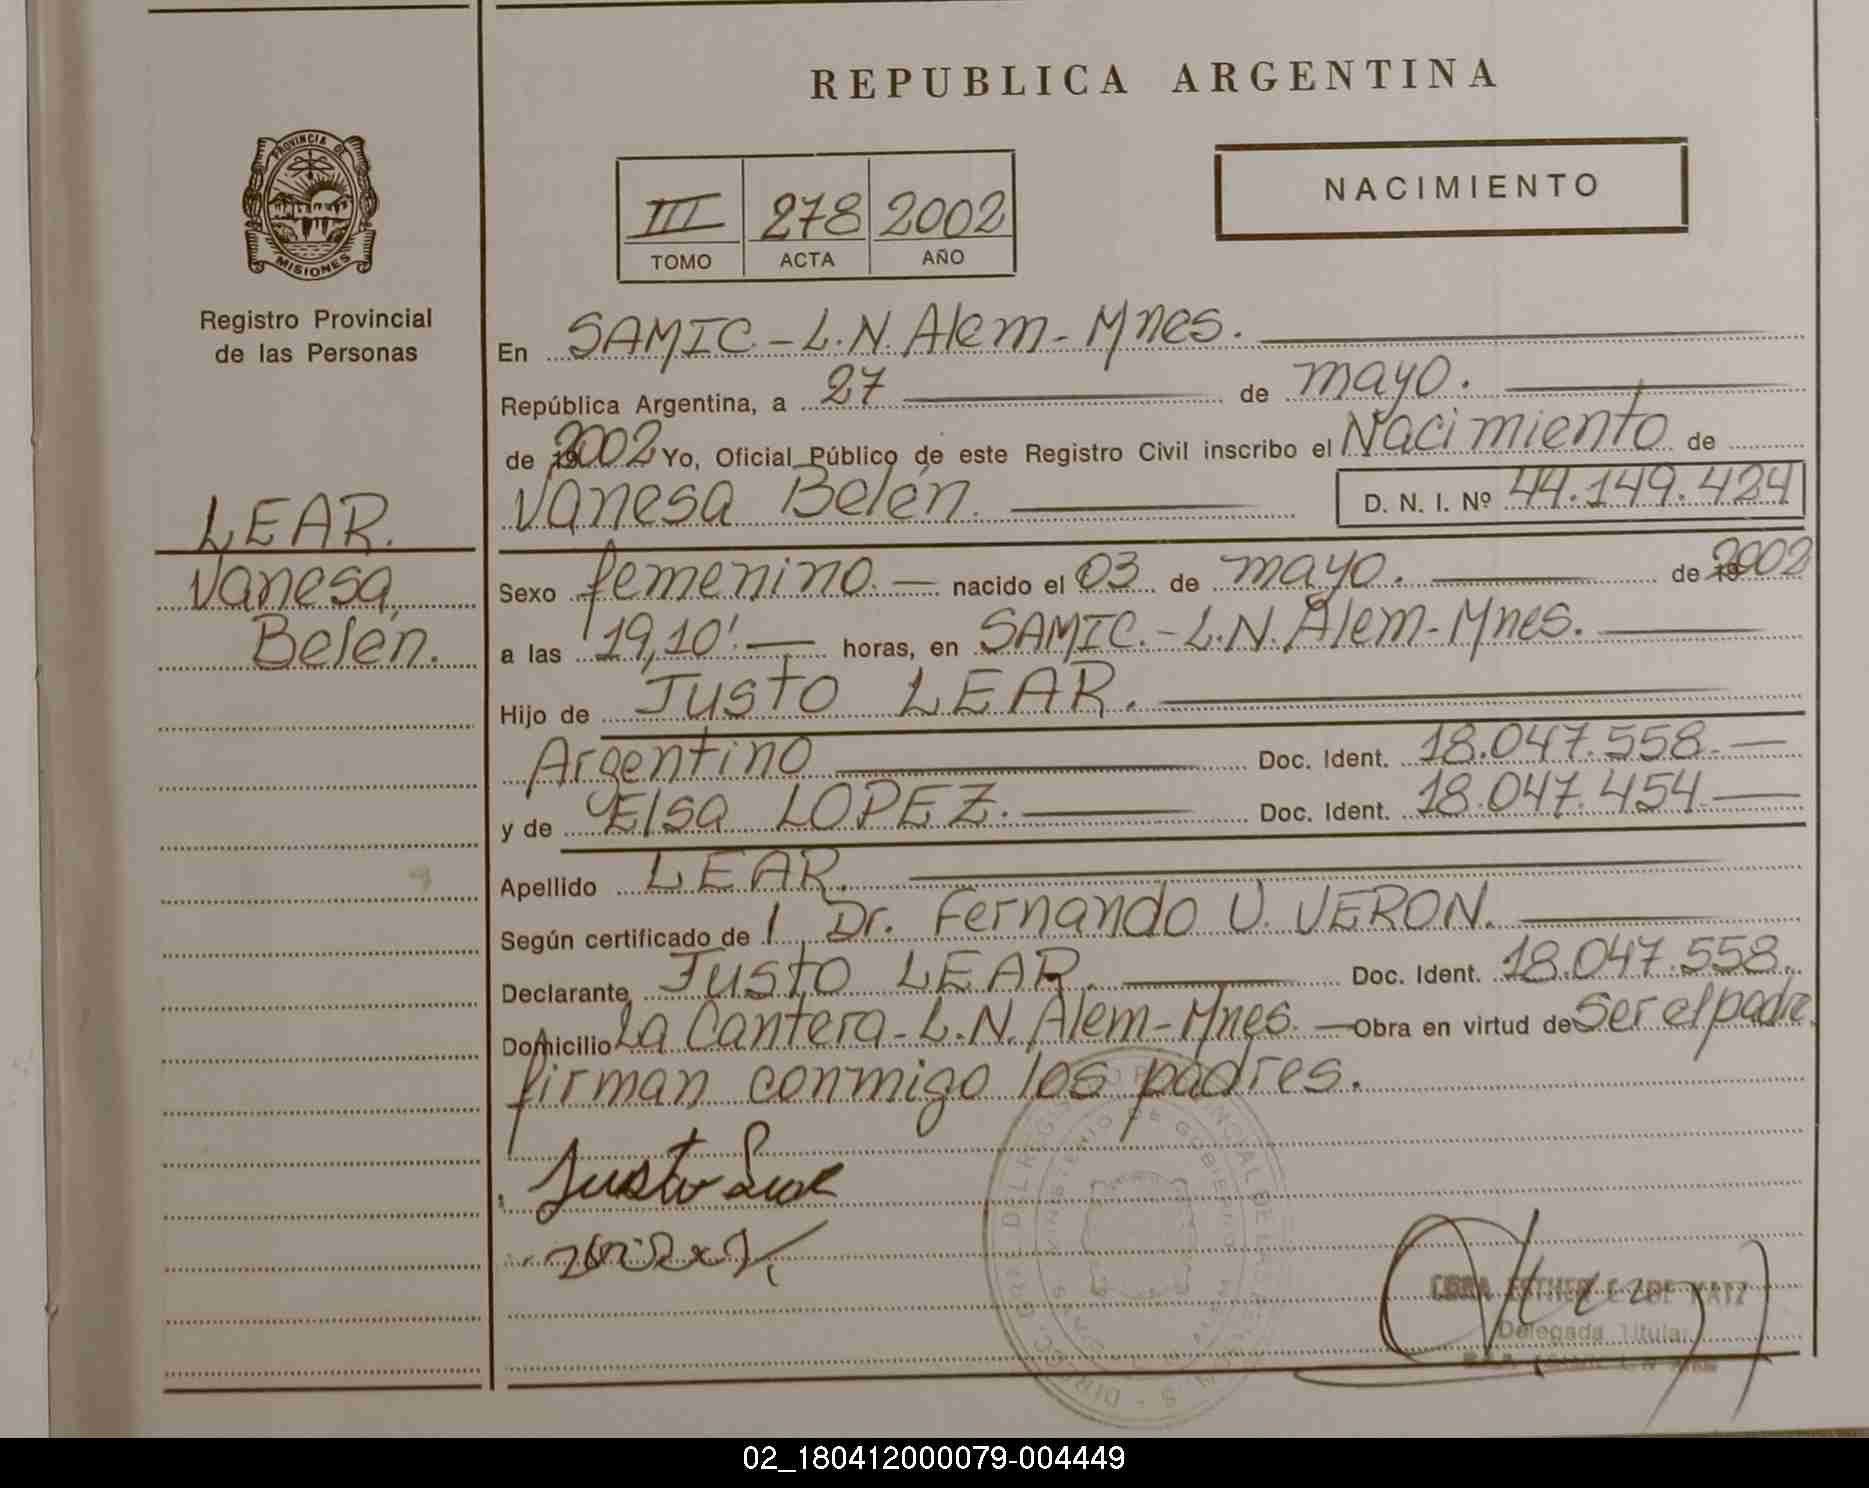 REPUBLICA ARGENTINA
PROVINCIA DE
MISIONES
Registro Provincial
de las Personas
III 278 2002
TOMO ACTA AÑO
NACIMIENTO
LEAR.
Vanesa
Belén.
En SAMIC.-L.N.Alem-Mnes.
República Argentina, a 27 de mayo.
de 2002 Yo, Oficial Público de este Registro Civil inscribo el Nacimiento de
Vanesa Belén. D. N. I. Nº 44.149.424
Sexo femenino. nacido el 03 de mayo. de 2002
a las 19,10'. horas, en SAMIC.-L.N.Alem-Mnes.
Hijo de Justo LEAR.
Argentino Doc. Ident. 18.047.558.
y de Elsa LOPEZ. Doc. Ident. 18.047.454
Apellido LEAR.
Según certificado de Dr. Fernando U. VERON.
Declarante Justo LEAR. Doc. Ident. 18.047.558.
Domicilio La Cantera-L.N.Alem-Mnes. Obra en virtud de Ser el padre.
firman conmigo los padres.
Justo Lear
ESTHER
Delegada Titular
02_180412000079-004449